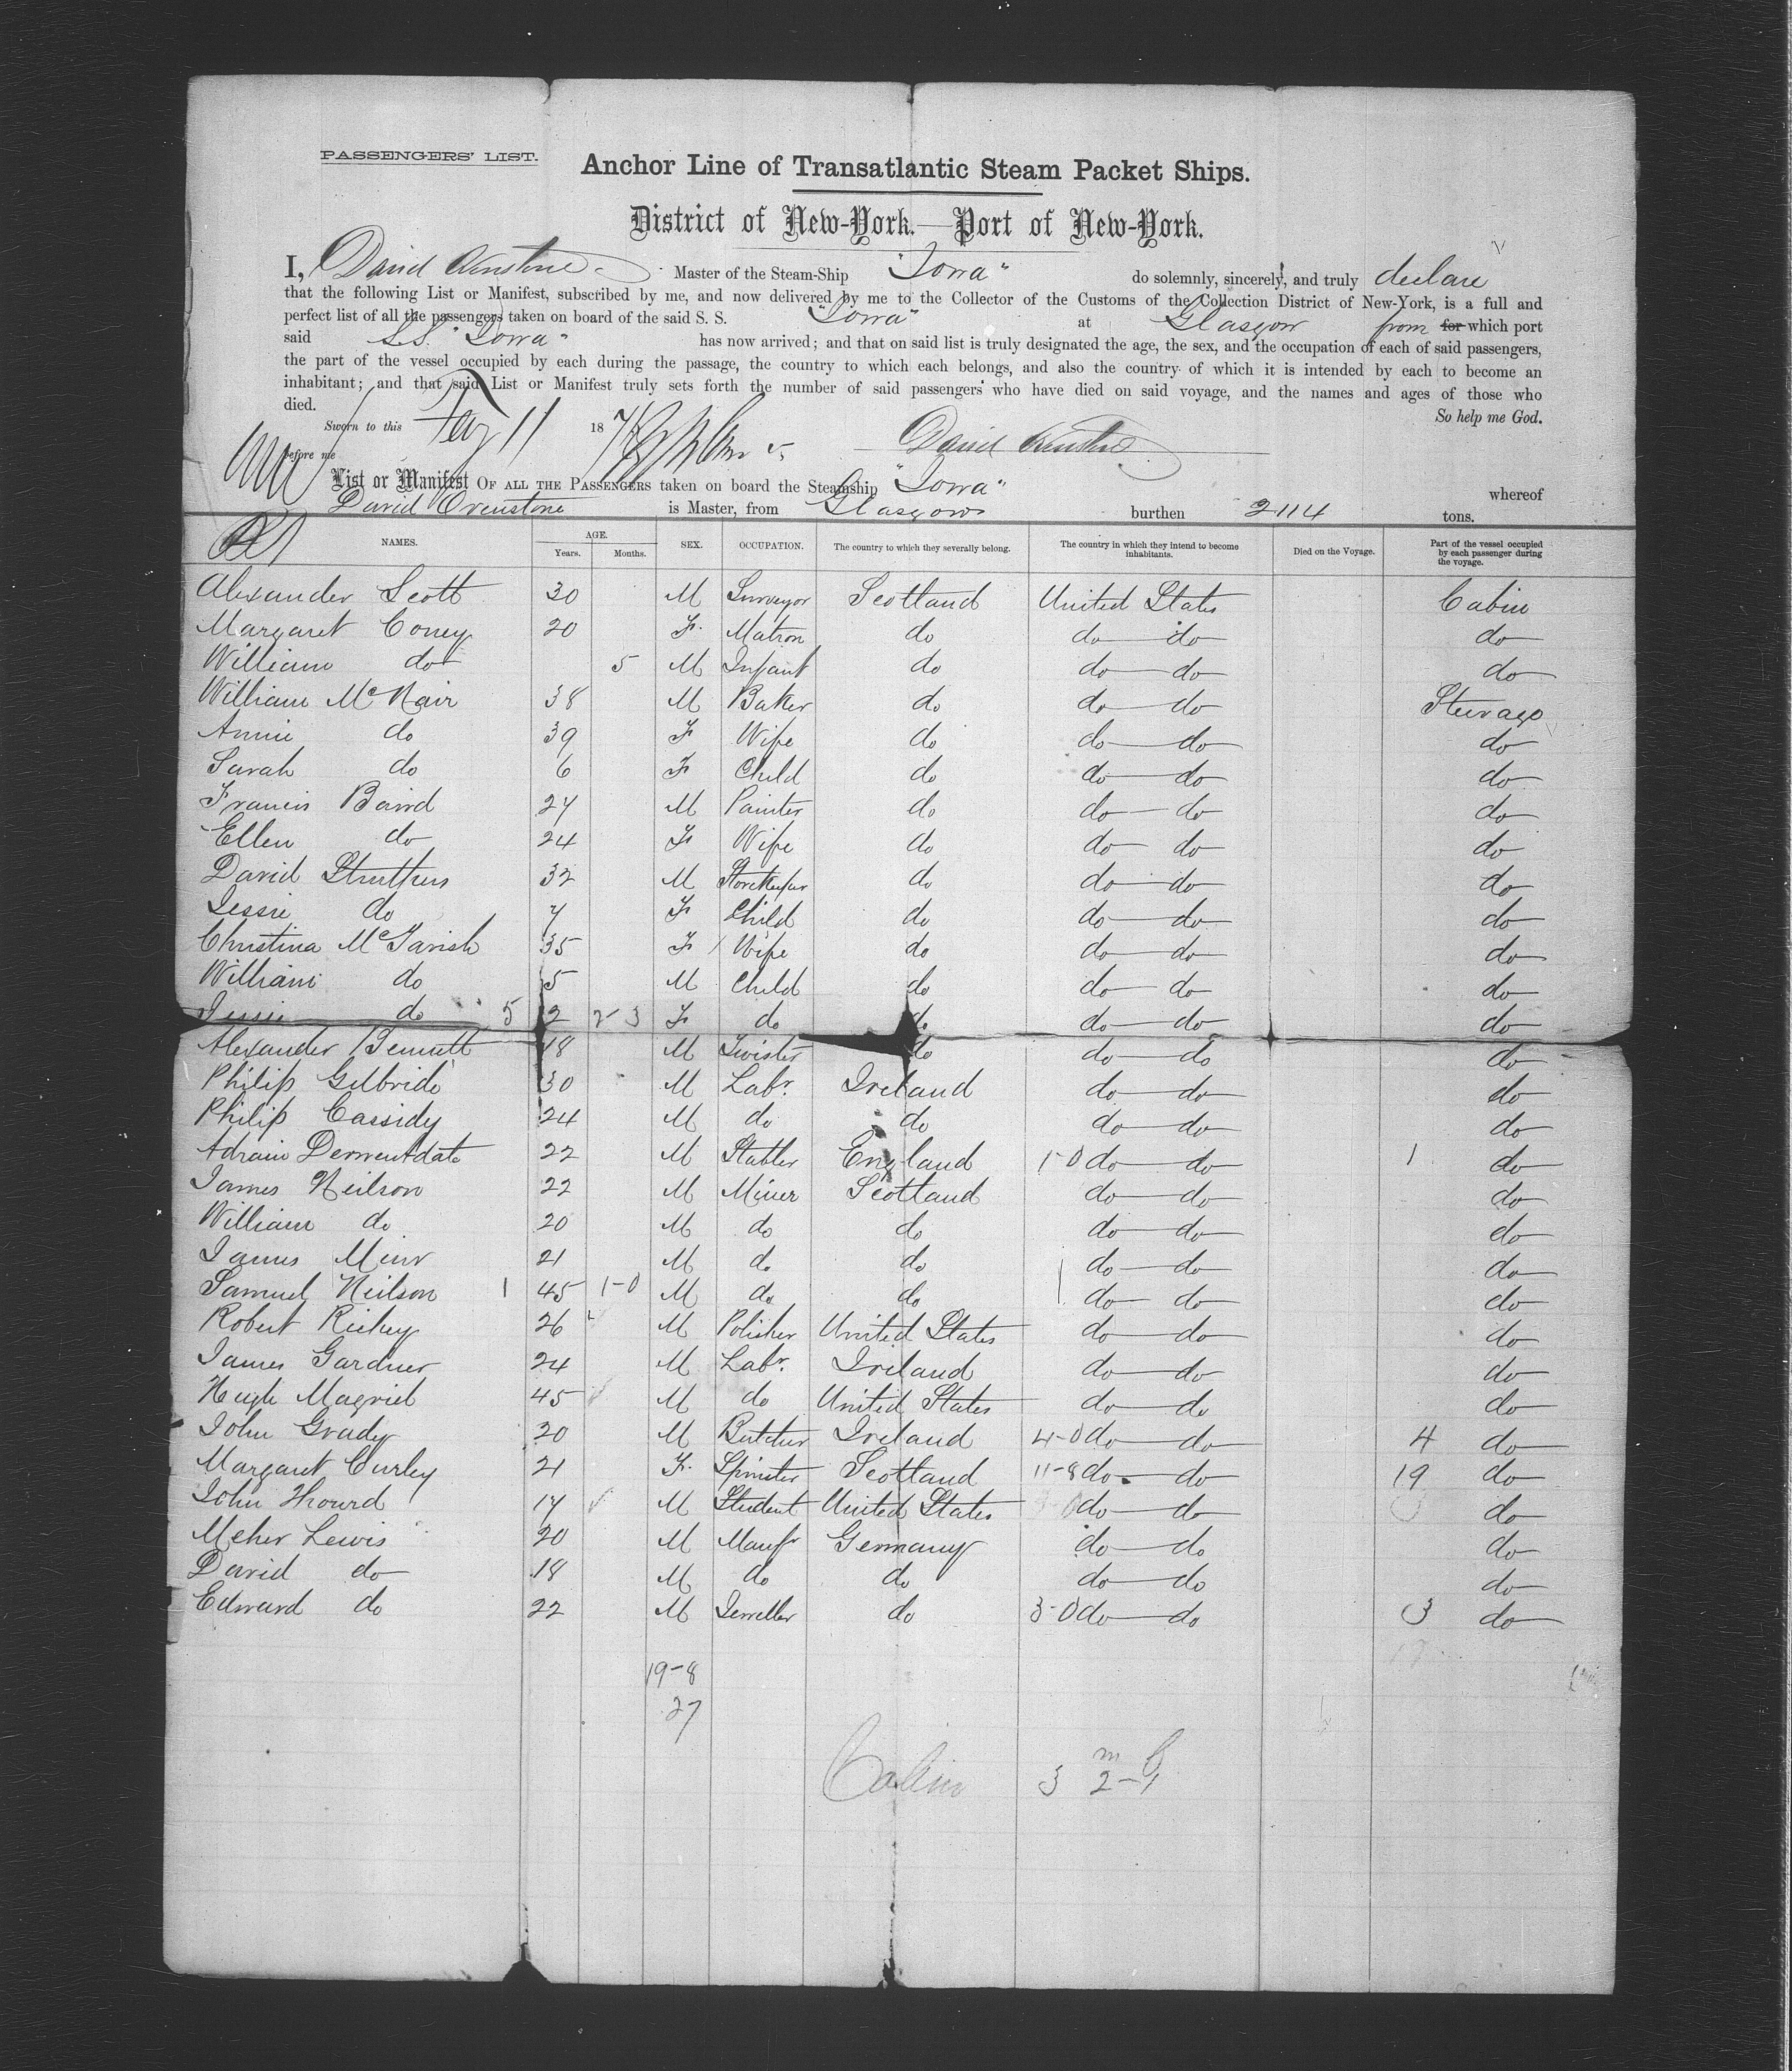 PASSENGERS' LIST.
Anchor Line of Transatlantic Steam Packet Ships.
District of New-York.—Port of New-York.
I, David Ovenstone Master of the Steam-Ship "Iowa" do solemnly, sincerely, and truly declare
that the following List or Manifest, subscribed by me, and now delivered by me to the Collector of the Customs of the Collection District of New-York, is a full and
perfect list of all the passengers taken on board of the said S. S. "Iowa" at Glasgow from for which port
said S.S. "Iowa" has now arrived; and that on said list is truly designated the age, the sex, and the occupation of each of said passengers,
the part of the vessel occupied by each during the passage, the country to which each belongs, and also the country of which it is intended by each to become an
inhabitant; and that said List or Manifest truly sets forth the number of said passengers who have died on said voyage, and the names and ages of those who
died. So help me God.
Sworn to this 11 18 David Ovenstone
before me
List or Manifest OF ALL THE PASSENGERS taken on board the Steamship "Iowa" whereof
David Ovenstone is Master, from Glasgow burthen 2114 tons.
NAMES. AGE. Years. Months. SEX. OCCUPATION. The country to which they severally belong. The country in which they intend to become inhabitants. Died on the Voyage. Part of the vessel occupied by each passenger during the voyage.
Alexander Scott 30 M Surveyor Scotland United States Cabin
Margaret Coney 20 F. Matron do do do do
William do 5 M Infant do do do do
William McNair 38 M Baker do do do Steerage
Annie do 39 F Wife do do do do
Sarah do 6 F Child do do do do
Francis Baird 27 M Painter do do do do
Ellen do 24 F Wife do do do do
David Struthers 32 M Storekeeper do do do do
Jessie do 7 F Child do do do do
Christina McTavish 35 F Wife do do do do
William do 5 M Child do do do do
Jessie do 5 2 2-3 F do do do do do
Alexander Bennett 18 M Twister do do do do
Philip Gilbride 30 M Labr. Ireland do do do
Philip Cassidy 24 M do do do do do
Adrain Derwentdate 22 M Statler England 1-0 do do 1 do
James Neilson 22 M Miner Scotland do do do
William do 20 M do do do do do
James Muir 21 M do do do do do
Samuel Neilson 1 45 1-0 M do do do do do
Robert Richey 26 M Polisher United States do do do
James Gardner 24 M Labr. Ireland do do do
Hugh Magriel 45 M do United States do do do
John Grady 20 M Butcher Ireland 4-0 do do 4 do
Margaret Curley 21 F. Spinster Scotland 11-8 do do 19 do
John Howrd 17 M Student United States do do do
Meher Lewis 20 M Manfr Germany do do do
David do 18 M do do do do do
Edward do 22 M Jeweller do 3-0 do do 3 do
19-8
27
m
Cabin 3 2-1